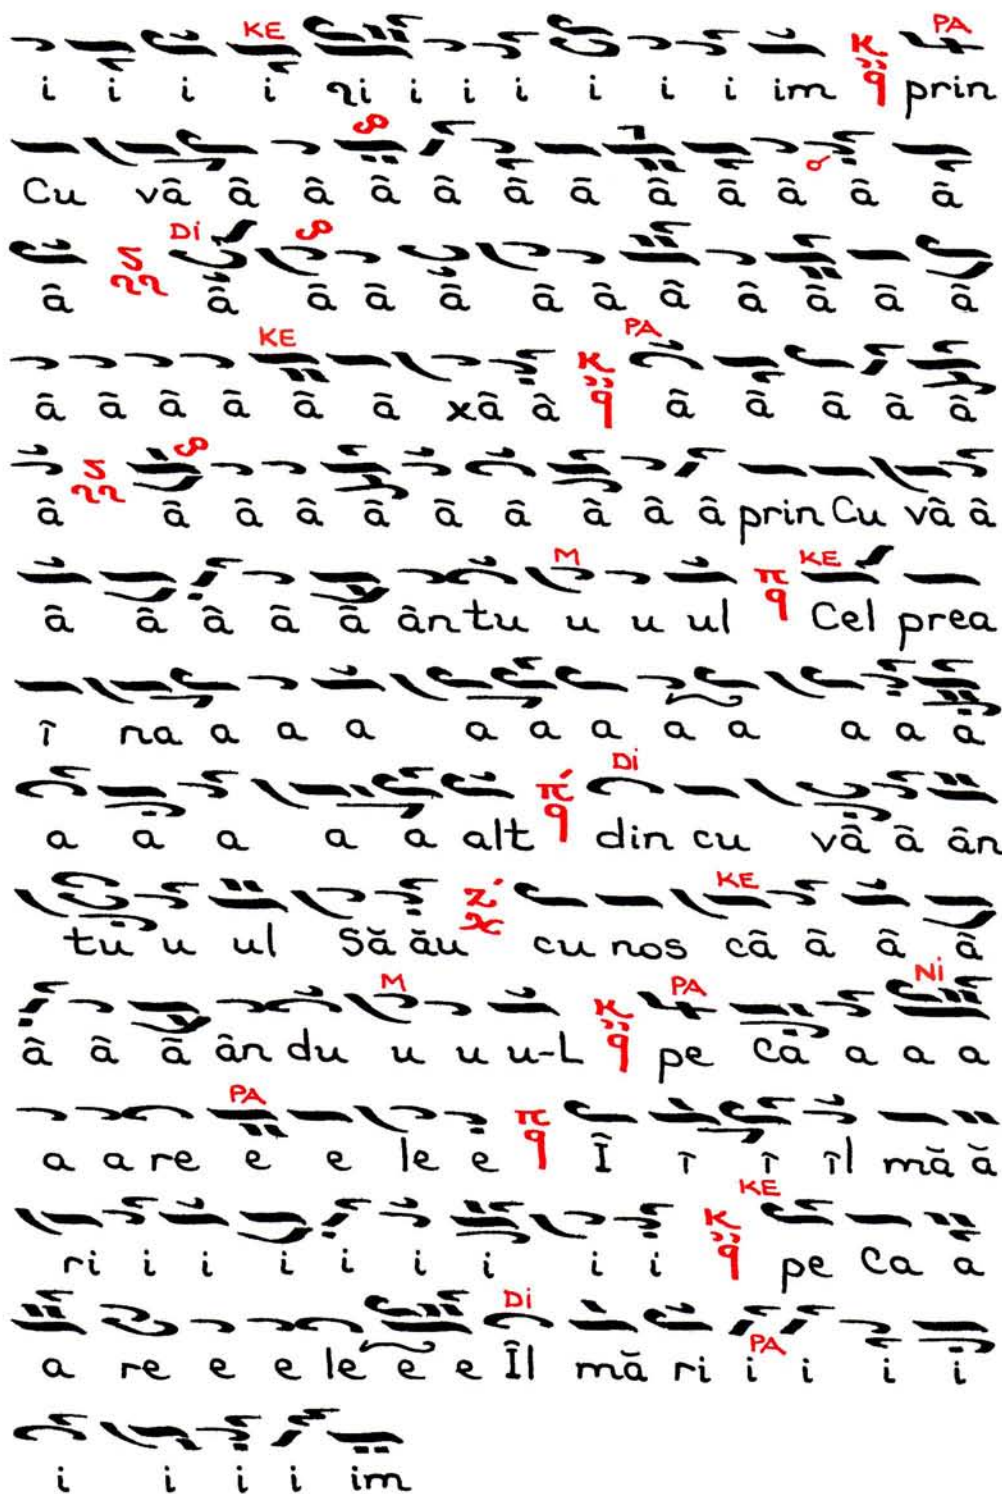 KE PA
i i i i ri i i i i i i im prin
Cu vâ â â â â â â â â â â â
Di
â â â â â â â â â â â â
KE PA
â â â â â â xâ â â â â â â
â â â â â â â â â â prin Cu vâ â
M π q KE
â â â â â ân tu u u ul Cel prea
î na a a a a a a a a a a a
Di
a a a a a alt π΄ q din cu vâ â ân
KE
tu u ul Să ău cu nos câ â â â
M PA Ni
â â â ân du u u u-L pe ca a a a
PA π q
a a re e e le e Î î î îl mă ă
KE
ri i i i i i i i i pe Ca a
Di
a re e e le e e Îl mă ri i i i i
PA
i i i i im